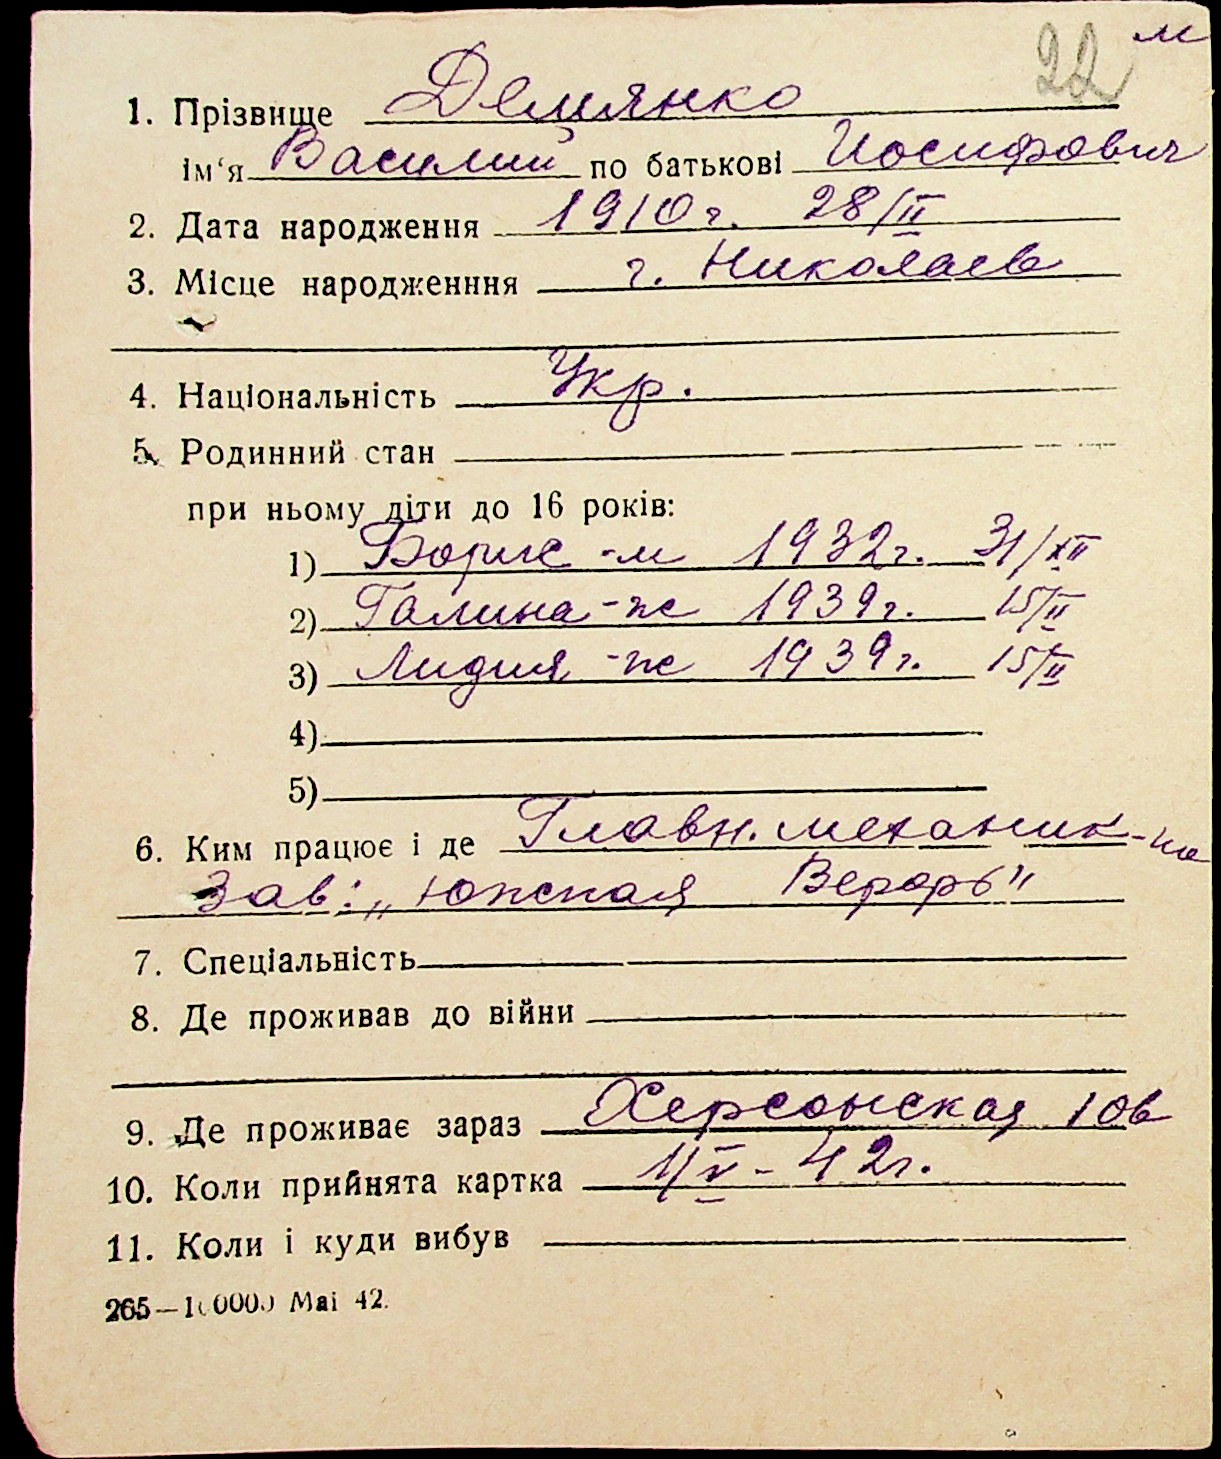 22 м
1. Прізвище Демянко
ім‘я Василий по батькові Иосифович
2. Дата народження 1910 г. 28/II
3. Місце народженння г. Николаев
4. Національність Укр.
5. Родинний стан
при ньому діти до 16 років:
1) Борис - м 1932 г. 31/XII
2) Галина - ж 1939 г. 15/II
3) Лидия - ж 1939 г. 15/II
4)
5)
6. Ким працює і де Главн. механик - на
Зав: „Южная Верфь"
7. Спеціальність
8. Де проживав до війни
9. Де проживає зараз Херсонская 10в
10. Коли прийнята картка 1/V - 42 г.
11. Коли і куди вибув
265—100000 Mai 42.